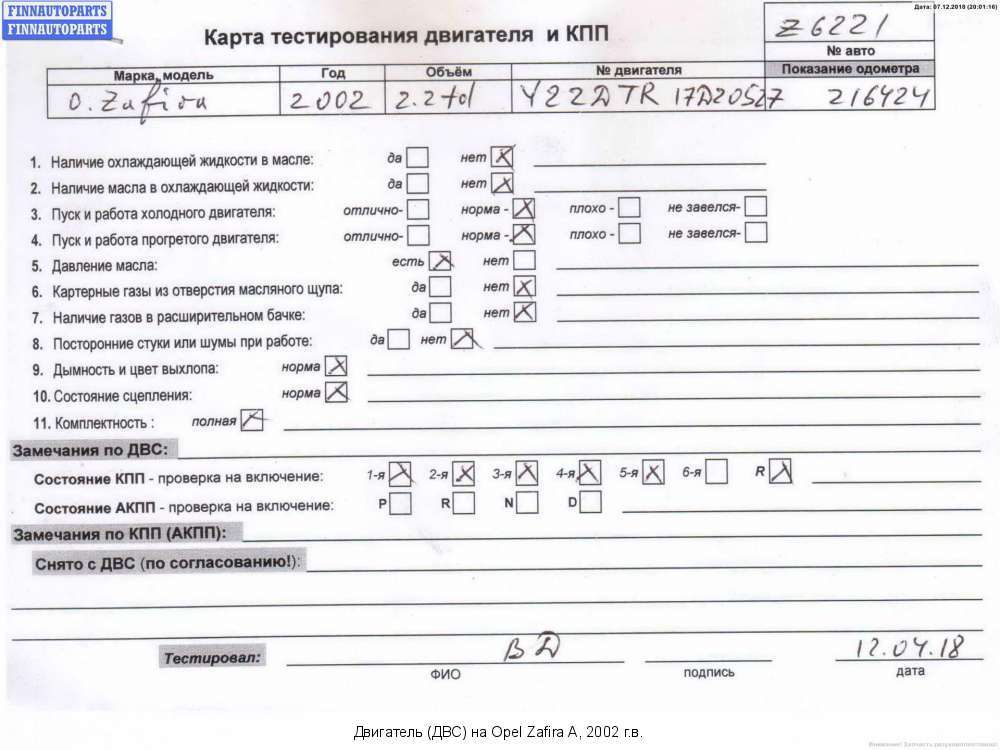 FINNAUTOPARTS
FINNAUTOPARTS
Дата: 07.12.2018 (20:01:16)
Карта тестирования двигателя и КПП
Z6221
№ авто
Марка, модель Год Объём № двигателя Показание одометра
O. Zafira 2002 2.2td Y22DTR 17D20527 216424
1. Наличие охлаждающей жидкости в масле: да нет
2. Наличие масла в охлаждающей жидкости: да нет
3. Пуск и работа холодного двигателя: отлично- норма - плохо - не завелся-
4. Пуск и работа прогретого двигателя: отлично- норма - плохо - не завелся-
5. Давление масла: есть нет
6. Картерные газы из отверстия масляного щупа: да нет
7. Наличие газов в расширительном бачке: да нет
8. Посторонние стуки или шумы при работе: да нет
9. Дымность и цвет выхлопа: норма
10. Состояние сцепления: норма
11. Комплектность : полная
Замечания по ДВС:
Состояние КПП - проверка на включение: 1-я 2-я 3-я 4-я 5-я 6-я R
Состояние АКПП - проверка на включение: P R N D
Замечания по КПП (АКПП):
Снято с ДВС (по согласованию!):
Тестировал: ВД 12.04.18
ФИО подпись дата
Двигатель (ДВС) на Opel Zafira A, 2002 г.в.